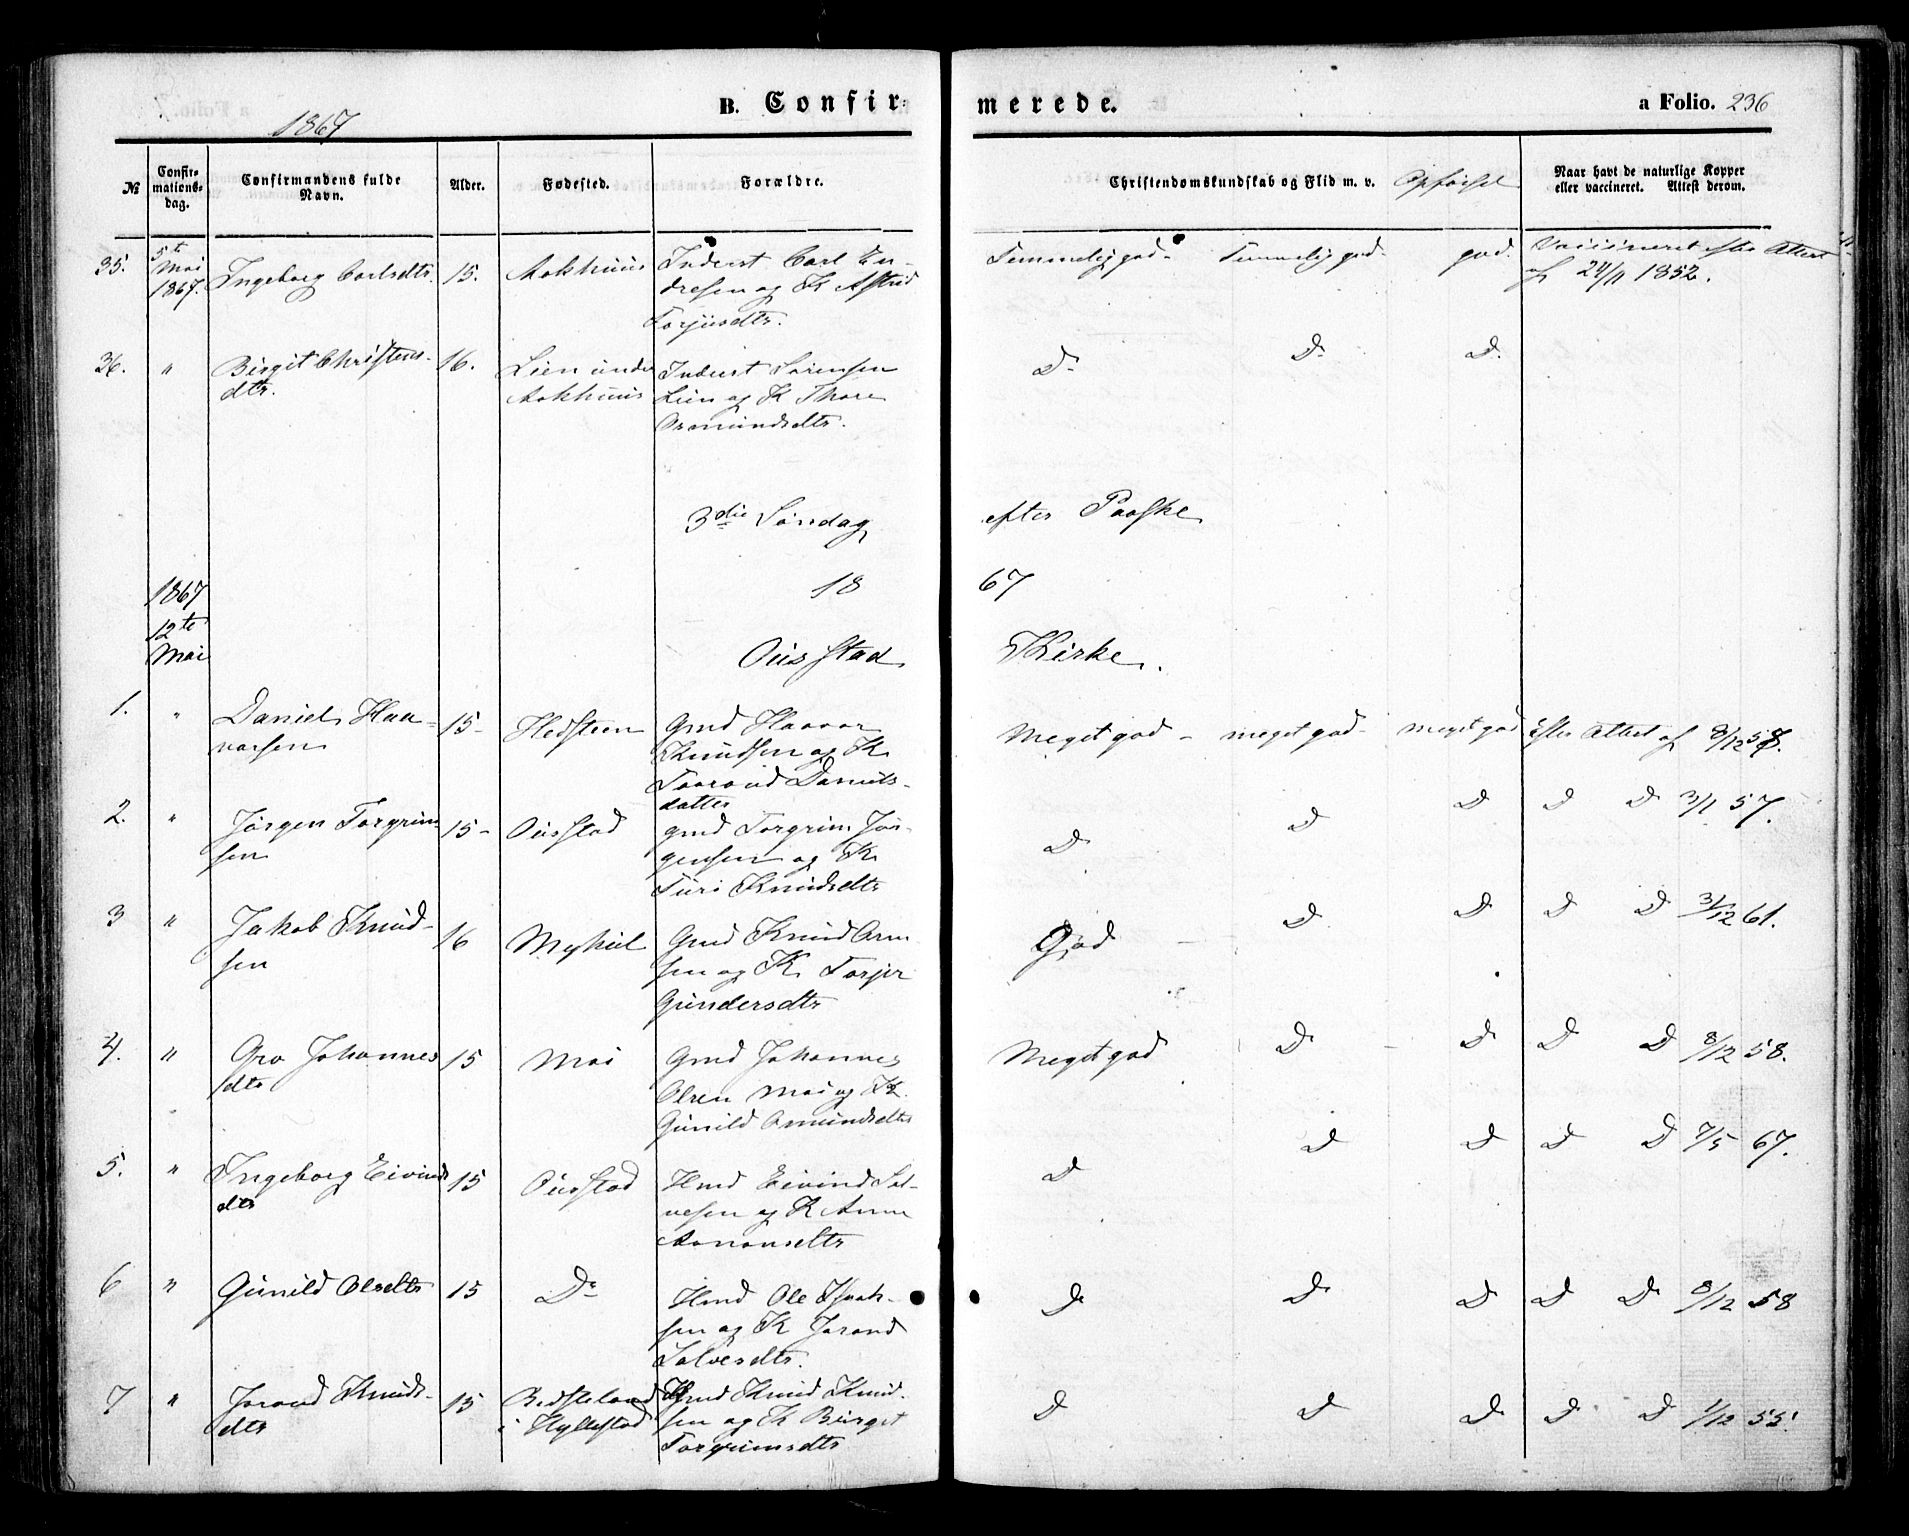 1867
B. Confir-
merede.
a Folio. 236
№
Confir-
mations-
dag.
Confirmandens fulde
Navn.
Alder.
Fødested.
Forældre.
Christendomskundskab og Flid m. v.
Opførsel
Naar havt de naturlige Kopper
eller vaccineret. Attest derom.
35.
5te
Mai
1867.
Ingeborg Carlsdtr.
15.
Aakhuus
Inderst Carl En-
dresen og K Astrid
Torjusdtr.
Temmelig god-
Temmelig god-
god.
Vaccineret efter Attest
af 24/11 1852.
36.
"
Birgit Christens-
dtr.
16.
Lien under
Aakhuus
Inderst Sørensen
Lien og K Thore
Osmundsdtr.
Do
Do
D.
3die Søndag
efter Paaske
1867
18
67
12te
Mai
Ousstad
Kirke.
1.
"
Daniel Haa-
varsen
15-
Hedsteen
Gmd Haavar
Knudsen og K
Taarand Daniels-
datter
Meget god -
meget god-
meget god
Efter Attest af 8/12 58.
2.
"
Jørgen Torgrim-
sen
15-
Ousstad
gmd Torgrim Jør-
gensen og K
Turi Knudsdtr
D
D
D
D
D 3/1 57.
3
"
Jakob Knud-
sen
16
Myhul
Gmd Knud Arn
sen og K Torjer
Gundersdtr
God
D
D
D
D 31/12 61.
4.
"
Gro Johannes
dtr
15
Moi
Gmd Johannes
Olsen Moi og K
Gunild Omundsdtr
Meget god
D
D
D
D 8/12 58.
5.
"
Ingeborg Eivinds
dtr
15
Ousstad
Hmd Eivind Sal-
vesen og K Anne
Aanonsdtr
D
D
D
D
D 7/5 67.
6
"
Gunild Olsdtr
15
Do
Hmd Ole
sen og K Jorand
Salvesdtr.
D
D
D
D
D 8/12 58
7
"
Jorand Knuds-
dtr
15
i Hyllestad
Gmd Knud Knud-
sen og K Birget
Torgrimsdtr
D
D
D
D
D 1/12 55.